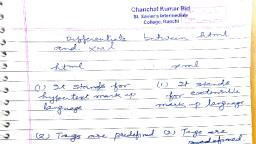 Chanchal Kumar Bid
St. Xavier's Intermediate
College, Ranchi
Differentials between html
and xml
html
xml
(1) It stands for
hypertext mark up
language
(1) It stands
for extensible
mark up language
(2) Tags are predefined
(2) Tags are
predefined